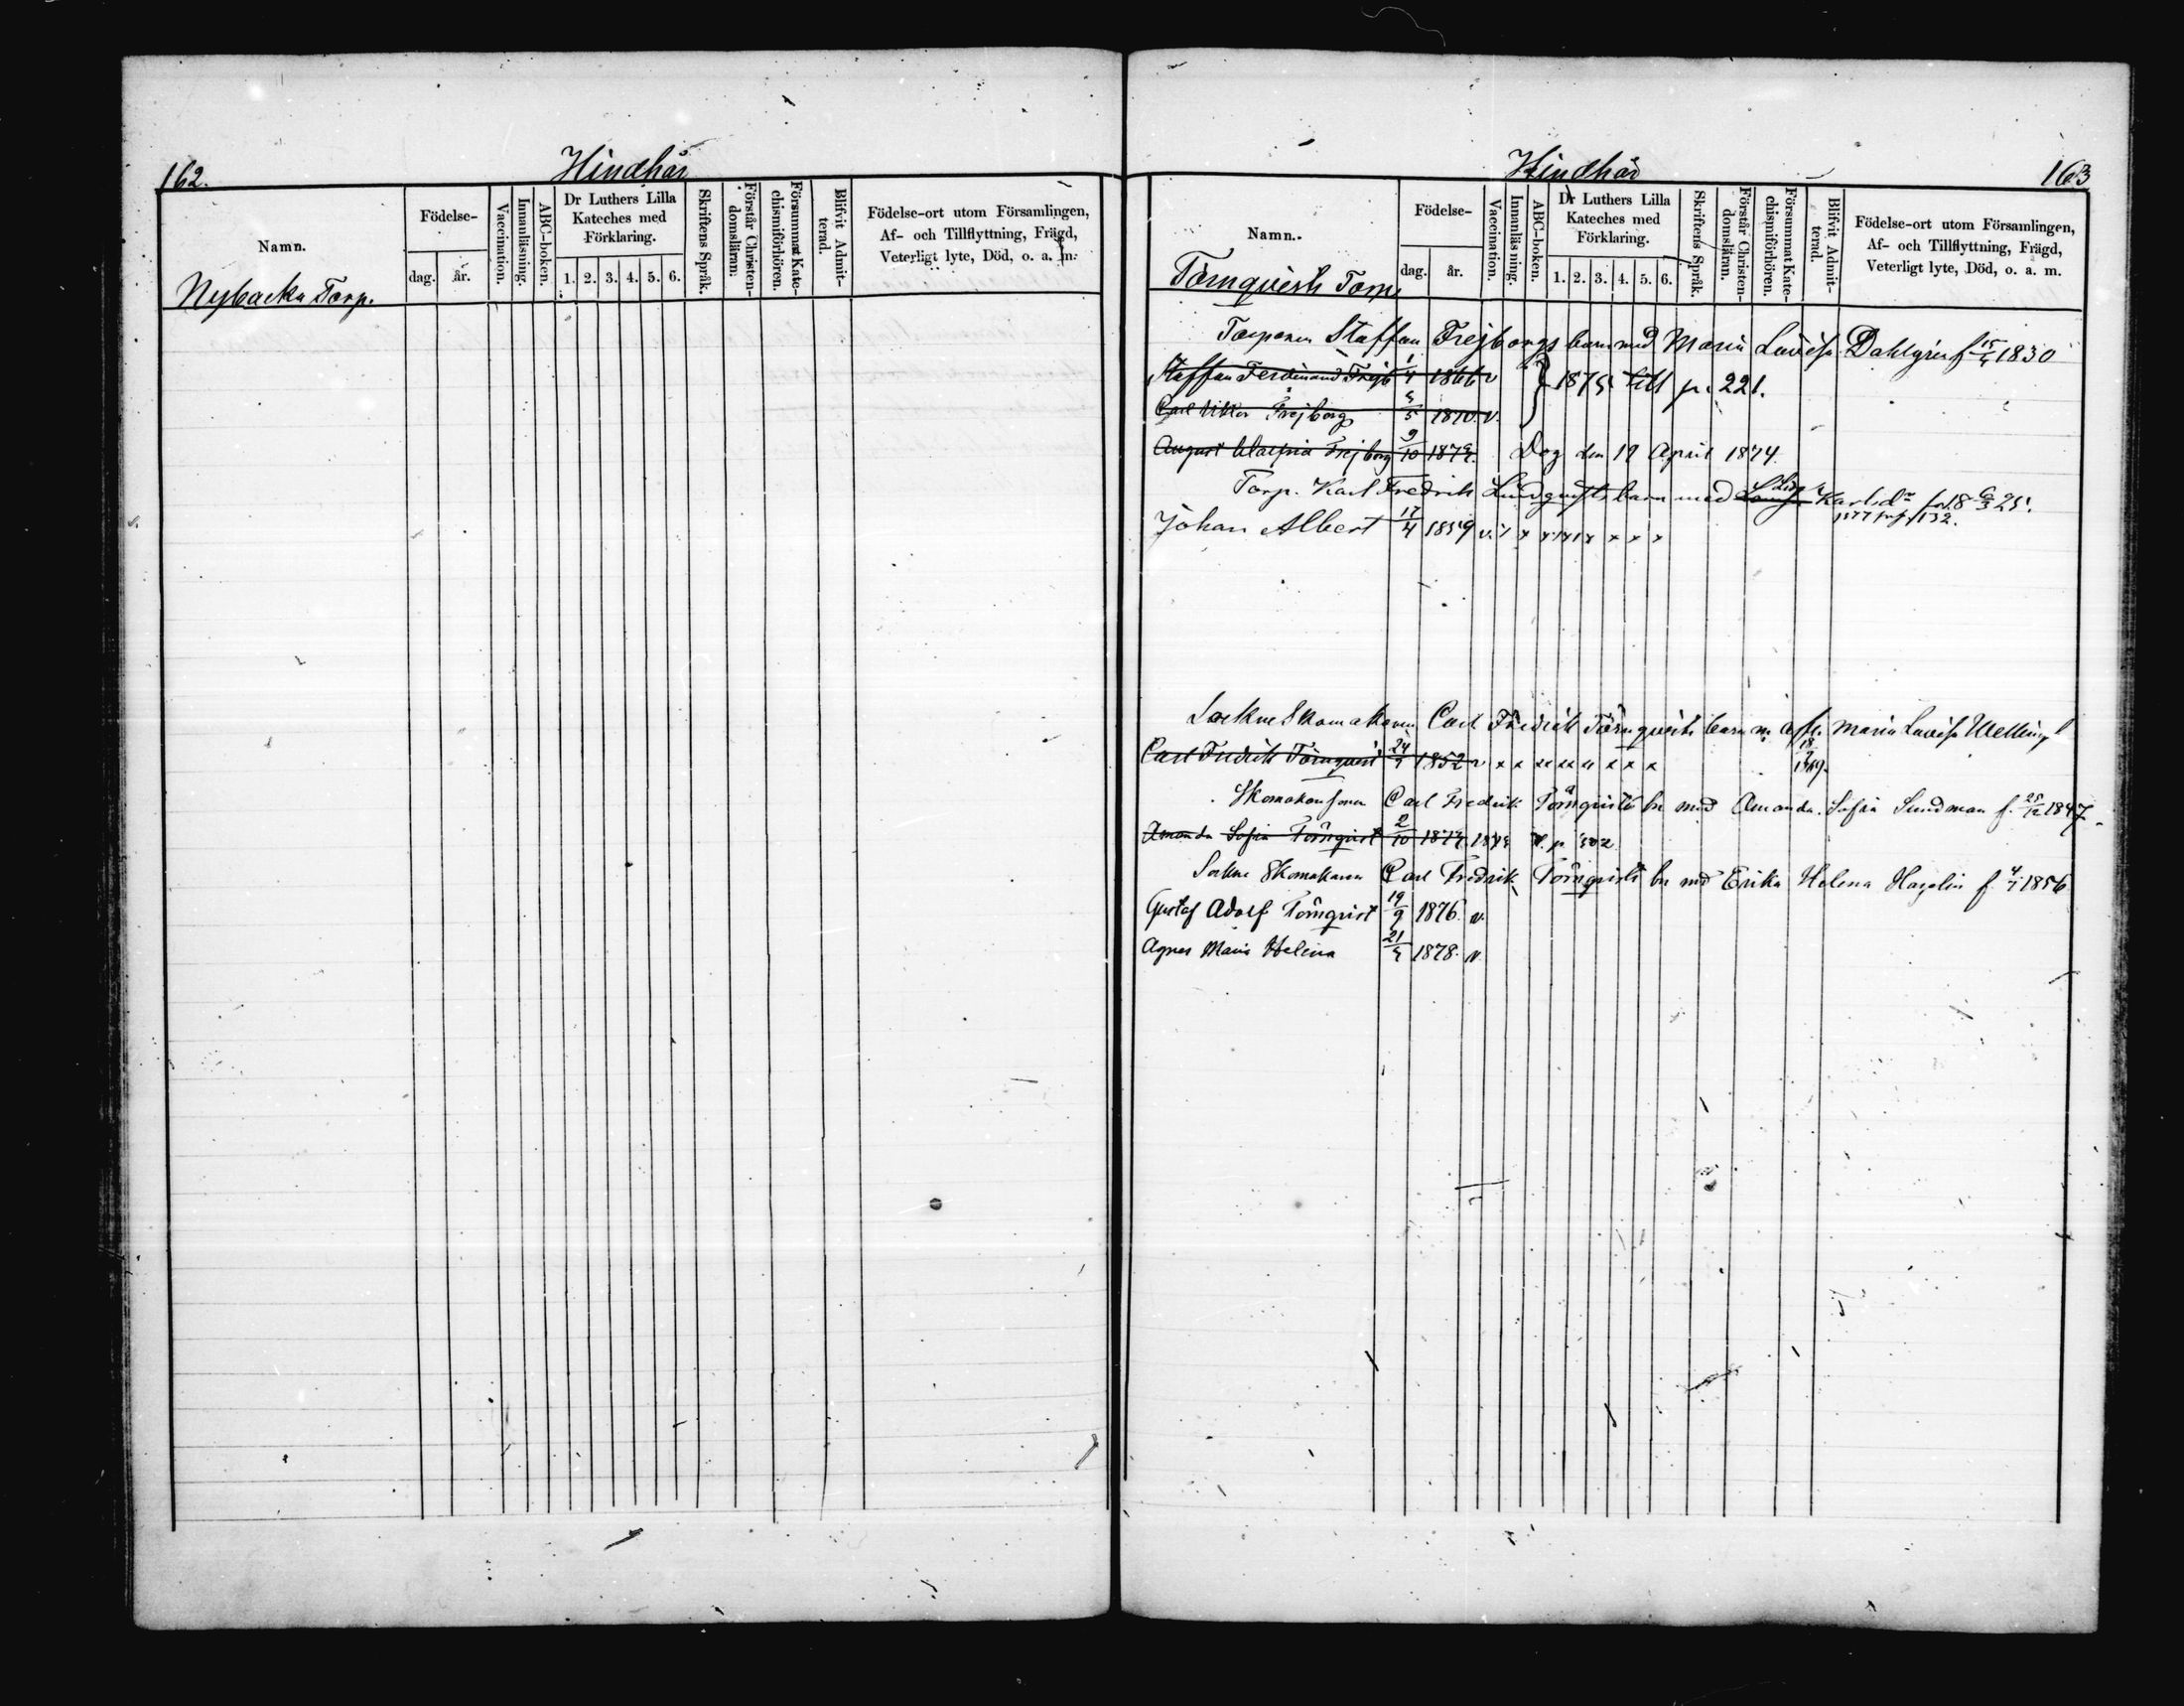 162.
Hindhår
Namn.
Födelse-
dag. år.
Vaccination.
Innanläsning.
ABC-boken.
Dr Luthers Lilla Kateches med Förklaring.
1. 2. 3. 4. 5. 6.
Skriftens Språk.
Förstår Christen-domsläran.
Försummat Kate-chismiförhören.
Blifvit Admit-terad.
Födelse-ort utom Församlingen,
Af- och Tillflyttning, Frägd,
Veterligt lyte, Död, o. a. m.
Nybacka Torp.
Hindhår
163
Namn.
Födelse-
dag. år.
Vaccination.
Innanläsning.
ABC-boken.
Dr Luthers Lilla Kateches med Förklaring.
1. 2. 3. 4. 5. 6.
Skriftens Språk.
Förstår Christen-domsläran.
Försummat Kate-chismiförhören.
Blifvit Admit-terad.
Födelse-ort utom Församlingen,
Af- och Tillflyttning, Frägd,
Veterligt lyte, Död, o. a. m.
Törnquists Torp
Torparen Staffan Frejborgs barn med Maria Lovisa Dahlgren f. 1830
Staffan Ferdinand Frejb 1866 v } 1875 till p. 221.
Carl Viktor Frejborg 5/5 1870. v.
August Frejborg 9/10 1872. Dog den 17 April 1874
Torp. Karl Fredrik Lundqvists barn med Karlsdr
Johan Albert 17/4 1859 v. x x x x x x x x
Sockne Skomakaren Carl Fredrik Törnqvists barn m. Maria Lovisa Welling
Carl Fredrik Törnquist 1852 v x x x x x x x x x
Skomakar sonen Carl Fredrik Törnqvists bn med Amanda Sofia Sundman f. 25/12 1847
Amanda Sofia Törnqvist 2/10
Sockne Skomakaren Carl Fredrik Törnqvists bn med Erika Helena Hagelin f. 1856
Gustaf Adolf Törnqvist 19/9 1876. v.
Agnes Maria Helena 1878. v.